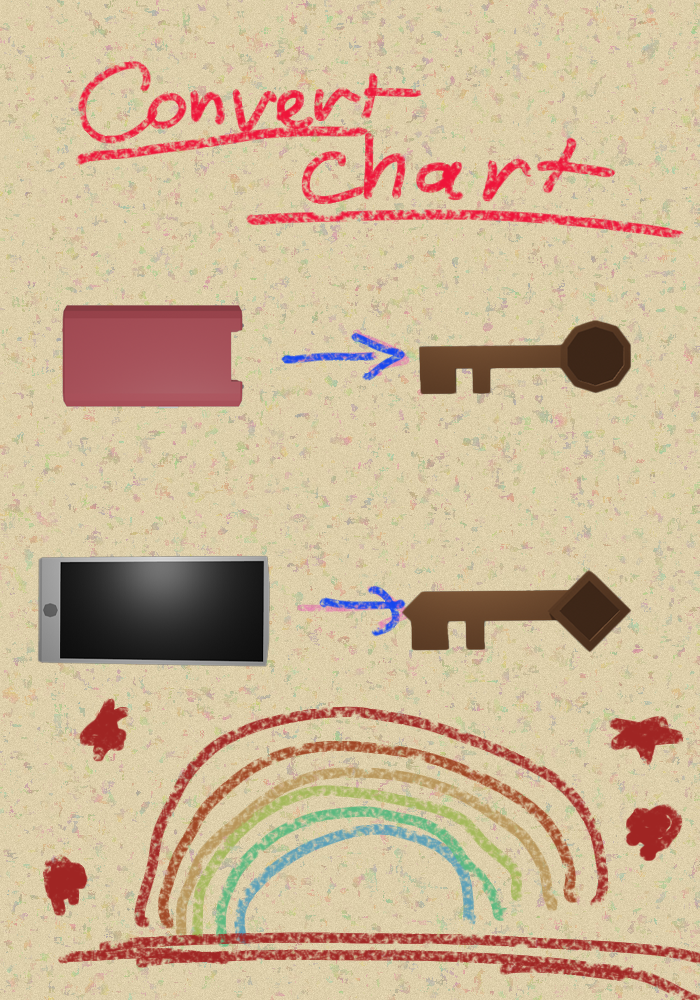 Convert
chart